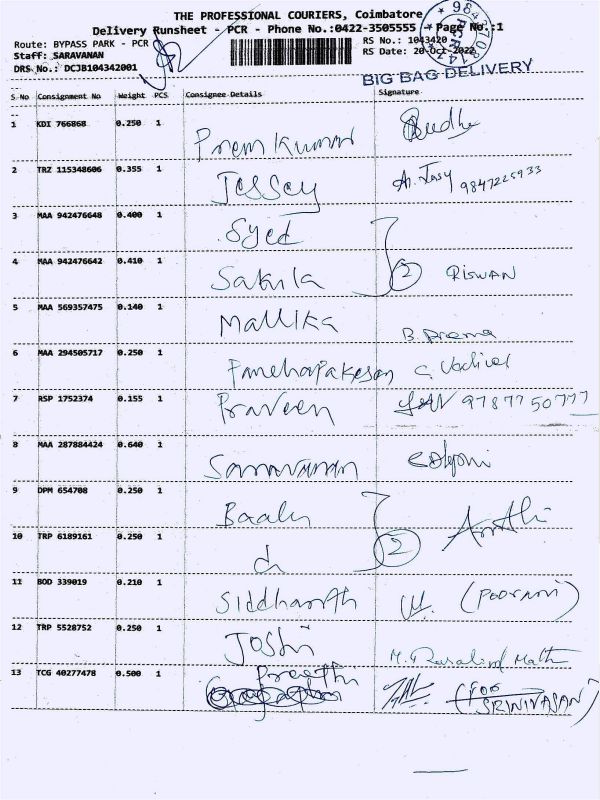 THE PROFESSIONAL COURIERS, Coimbatore
Delivery Runsheet - PCR - Phone No.:0422-3505555 * Page No.:1
Route: BYPASS PARK - PCR
RS No.: 1043420
Staff: SARAVANAN
RS Date: 20-Oct-2022
DRS No.: DCJB104342001
BIG BAG DELIVERY
S No Consignment No Weight PCS Consignee Details Signature
1 KDI 766868 0.250 1 Prem Kumar
2 TRZ 115348606 0.355 1 Jessey
3 MAA 942476648 0.400 1 Syed
4 MAA 942476642 0.410 1 Sakila 2 RISWAN
5 MAA 569357475 0.140 1 Mallika B. Prema
6 MAA 294505717 0.250 1 Panchapakesan
7 RSP 1752374 0.155 1 Praveen
8 MAA 287884424 0.640 1 Saravanan
9 DPM 654708 0.250 1
10 TRP 6189161 0.250 1 d 2
11 BOD 339019 0.210 1 Siddharth
12 TRP 5528752 0.250 1 Joshi
13 TCG 40277478 0.500 1 Preethi (FOR SRINIVASAN)